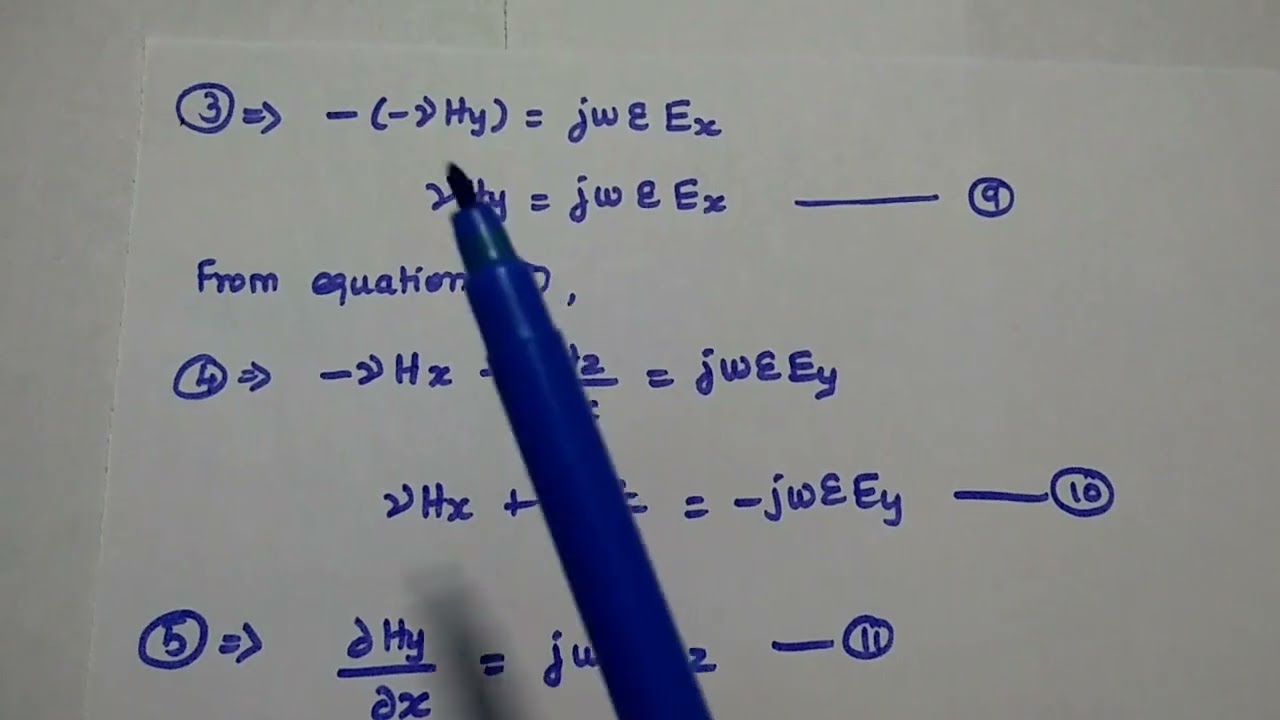 ③ ⇒ -(-νHy) = jωεEx
νHy = jωεEx —— ⑨
From equation ,
④ ⇒ -νHx = jωεEy
νHx + = -jωεEy —— ⑩
⑤ ⇒ ∂Hy/∂x = jω z — ⑪